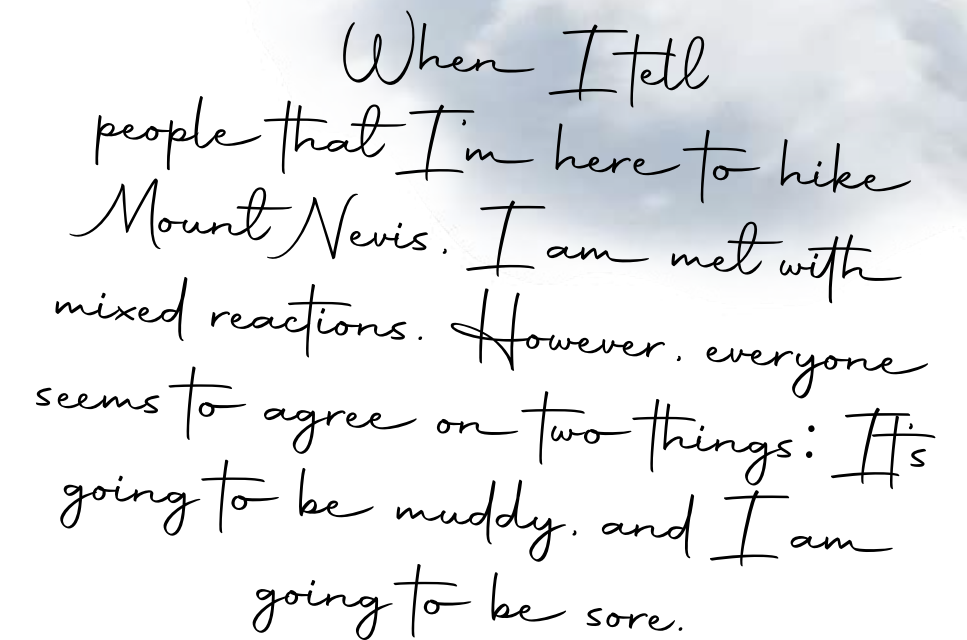 When I tell
people that I'm here to hike
Mount Nevis, I am met with
mixed reactions. However, everyone
seems to agree on two things: It's
going to be muddy, and I am
going to be sore.